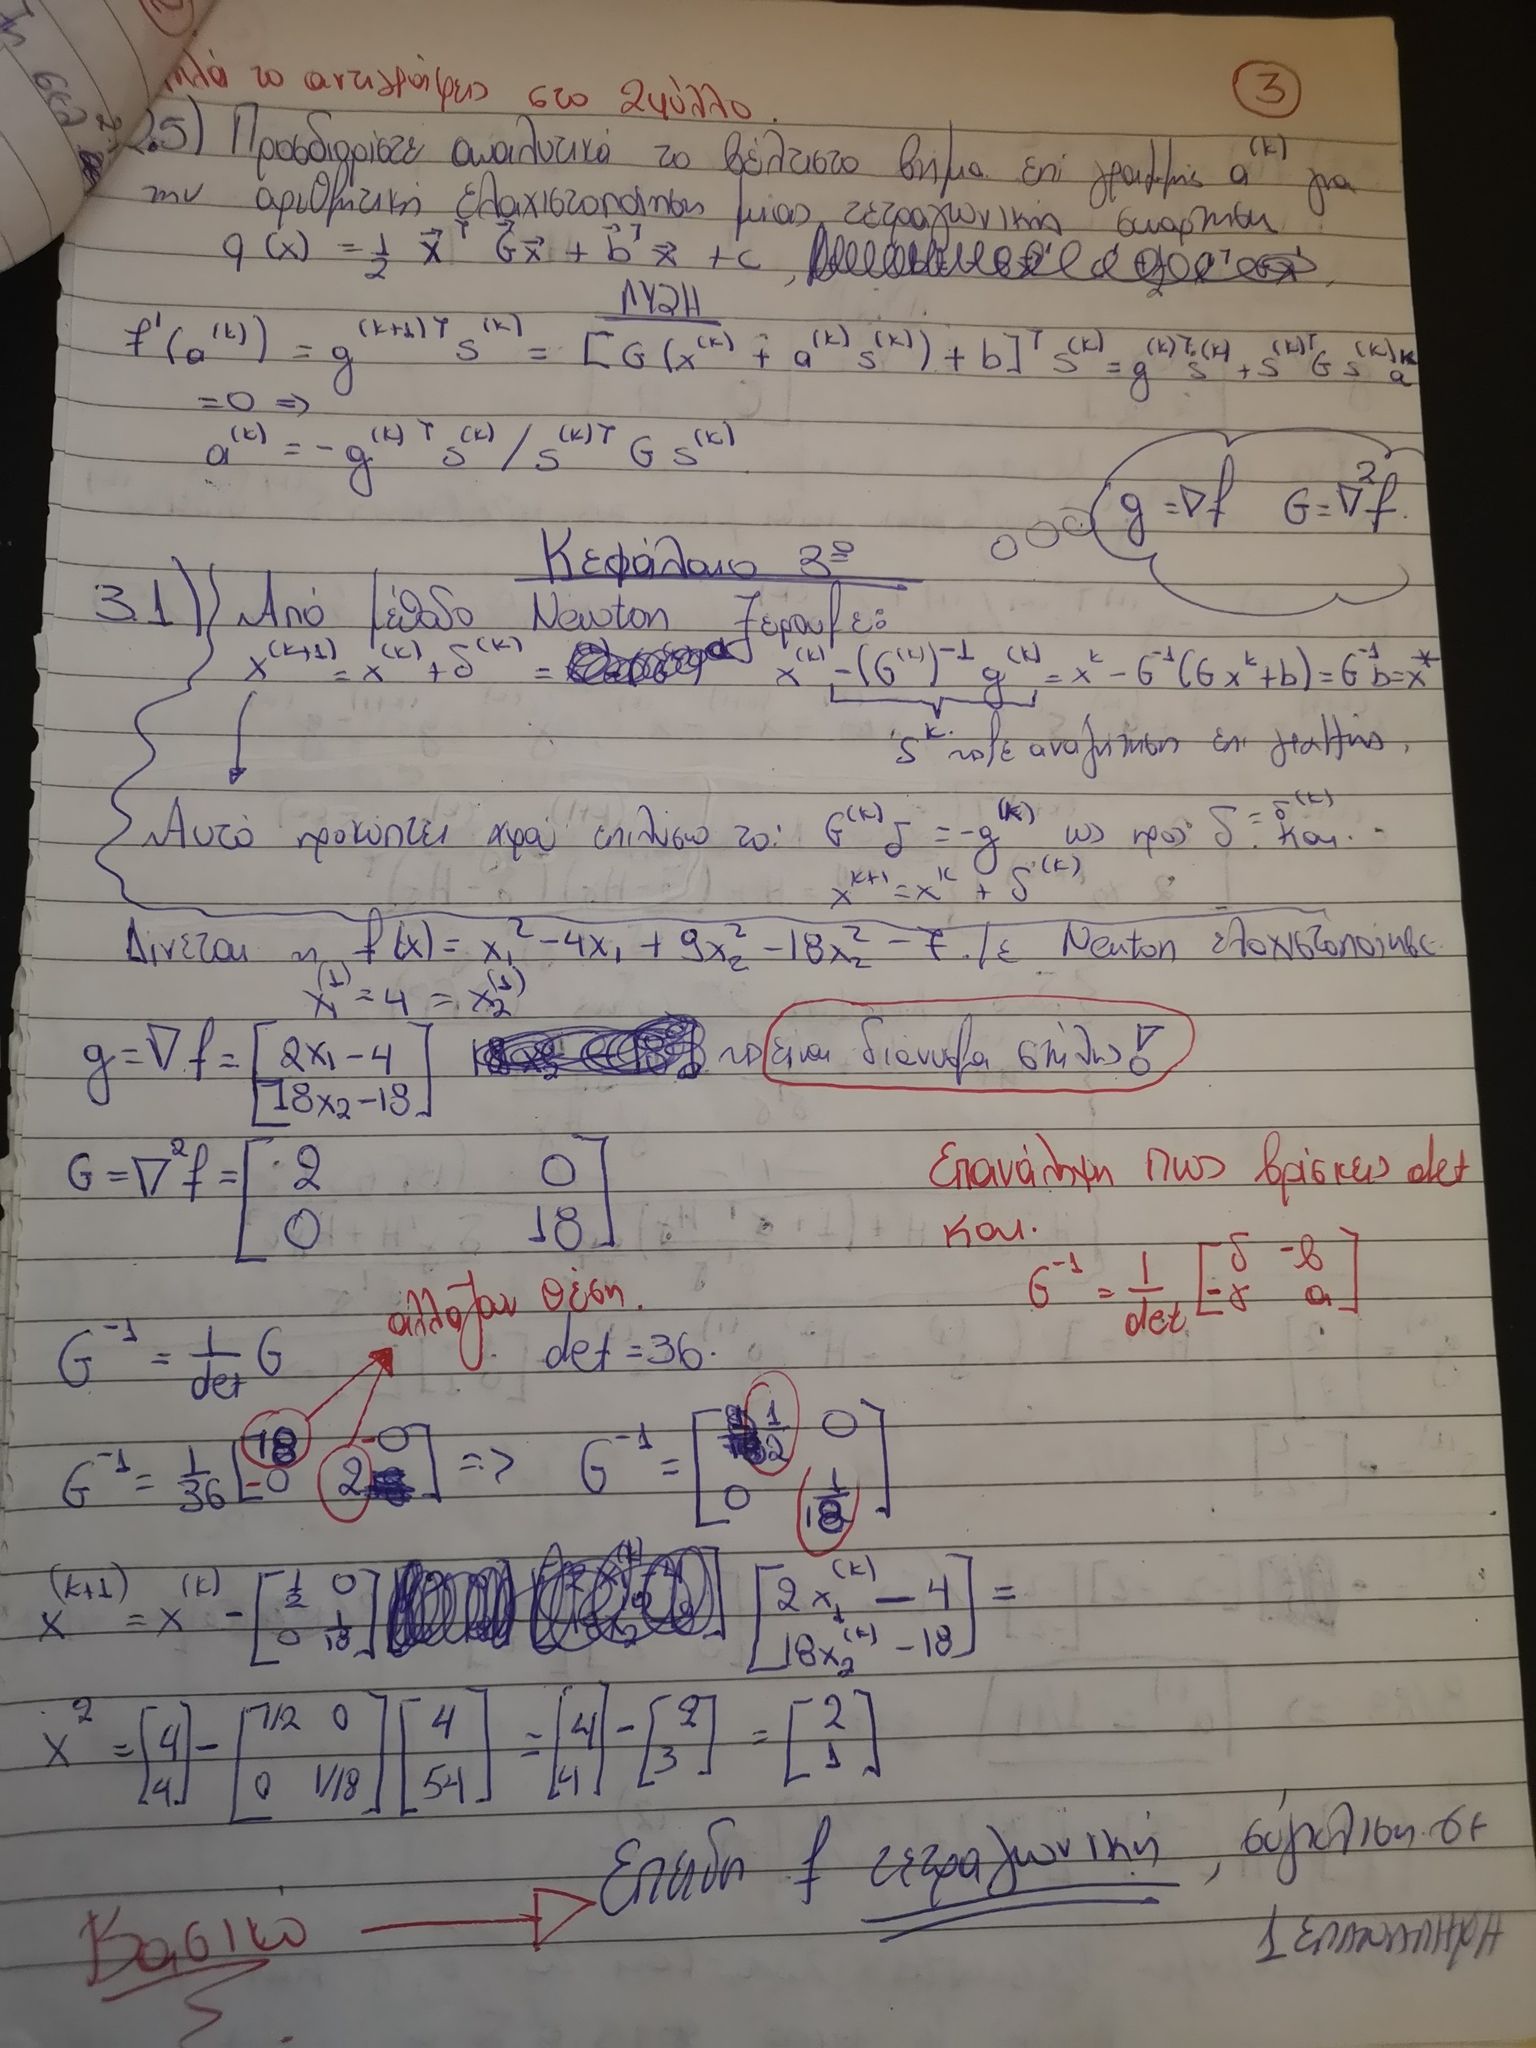 το αντιγράφεις στο 2φύλλο.
3
2.5) Προσδιορίστε αναλυτικά το βέλτιστο βήμα επί γραμμής a^(k) για
την αριθμητική ελαχιστοποίηση μιας τετραγωνικής συνάρτησης
q(x) = 1/2 x^T G x + b^T x + c,
ΛΥΣΗ
f'(a^(k)) = g^(k+1)T s^(k) = [G(x^(k) + a^(k) s^(k)) + b]^T s^(k) = g^(k)T s^(k) + s^(k)T G s^(k) a^k
=0 =>
a^(k) = -g^(k)T s^(k) / s^(k)T G s^(k)
g = ∇f G = ∇²f.
Κεφάλαιο 3ο
3.1) Από μέθοδο Newton ξέρουμε:
x^(k+1) = x^(k) + δ^(k) = x^(k) - (G^(k))^-1 g^(k) = x^k - G^-1(Gx^k + b) = G^-1 b = x*
s^k αναζήτηση επί γραμμής.
Αυτό προκύπτει αφού επιλύσω το: G^(k) δ = -g^(k) ως προς δ = δ^(k) και.
x^k+1 = x^k + δ^(k)
Δίνεται η f(x) = x₁² - 4x₁ + 9x₂² - 18x₂² - 7. Με Newton ελαχιστοποίησε
x₁^(1) = 4 = x₂^(1)
g = ∇f = [2x₁ - 4
18x₂ - 18] το είναι διάνυσμα στήλης!
G = ∇²f = [2 0
0 18]
Επανάληψη πως βρίσκεις det
και.
G^-1 = 1/det [δ -β
-γ α]
αλλάζαν θέση.
G^-1 = 1/det G det = 36.
G^-1 = 1/36 [18 -0
-0 2] => G^-1 = [1/2 0
0 1/18]
x^(k+1) = x^(k) - [1/2 0
0 1/18] [2x₁^(k) - 4
18x₂^(k) - 18] =
x² = [4
4] - [1/2 0
0 1/18] [4
54] = [4
4] - [2
3] = [2
1]
Επειδή f τετραγωνική, σύγκλιση σε
1 επανάληψη
Βασικό